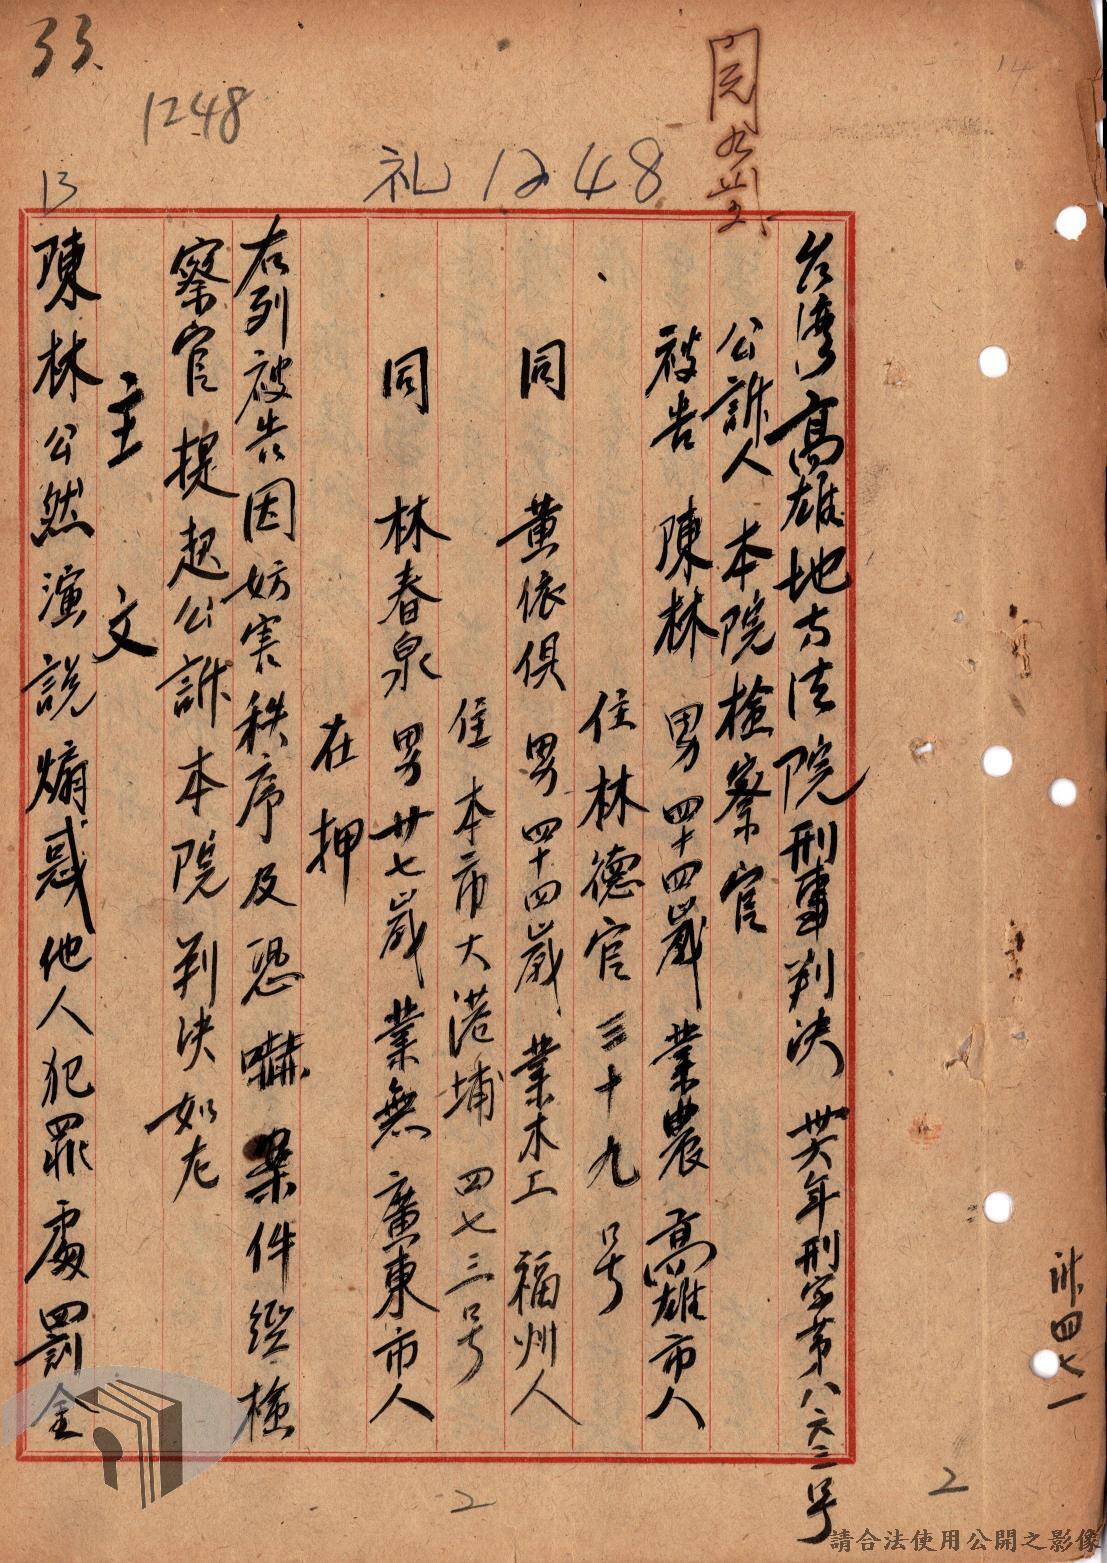 33.
1248
礼1248
13
14
台湾高雄地方法院刑事判决 卅六年刑字第八六三号
公訴人 本院檢察官
被告 陳林 男 四十四歲 業農 高雄市人
住林德官三十九号
同 黄依俱 男 四十四歲 業木工 福州人
住本市大港埔四七三号
同 林春泉 男 卅七歲 業無 廣東市人
在押
右列被告因妨害秩序及恐嚇案件經檢
察官提起公訴本院判决如左
主文
陳林公然演説煽惑他人犯罪處罰金
訴四七一
2
2
請合法使用公開之影像